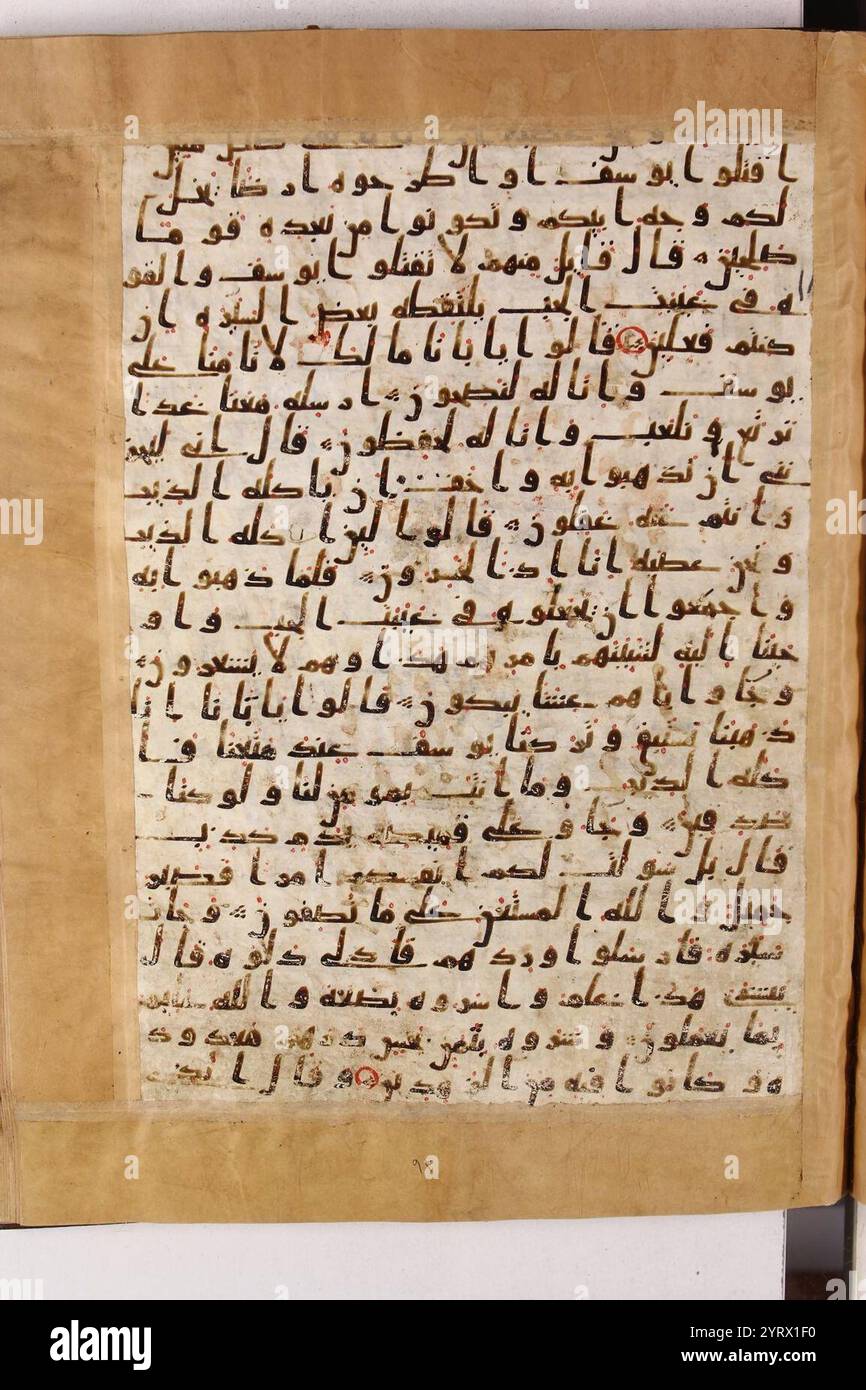 اقتلوا يوسف او اطرحوه ارضا يخل
لكم وجه ابيكم وتكونوا من بعده قوما
صلحين قال قايل منهم لا تقتلوا يوسف والقو
ه في غيبت الجب يلتقطه بعض السيره ان
كنتم فعلين قالوا يابانا ما لك لا تامنا على
يوسف وانا له لنصحون ارسله معنا غدا
يرتع ويلعب وانا له لحفظون قال اني ليحز
نني ان تذهبوا به واخاف ان ياكله الذيب
وانتم عنه غفلون قالوا لين اكله الذيب
ونحن عصبه انا اذا لخسرون فلما ذهبوا به
واجمعوا ان يجعلوه في غيبت الجب واو
حينا اليه لتنبينهم بامرهم هذا وهم لا يشعرون
وجاو اباهم عشا يبكون قالوا يابانا انا
ذهبنا نستبق وتركنا يوسف عند متعنا فا
كله الذيب وما انت بمومن لنا ولو كنا
صدقين وجاو على قميصه بدم كذب
قال بل سولت لكم انفسكم امرا فصبر
جميل والله المستعن على ما تصفون وجات
سيره فارسلوا وردهم فادلى دلوه قال
يبشرى هذا غلم واسروه بضعه والله عليم
بما يعملون وشروه بثمن بخس درهم معدود
ه وكانوا فيه من الزهدين وقال الذي
alamy
Image ID: 2YRX1F0
www.alamy.com